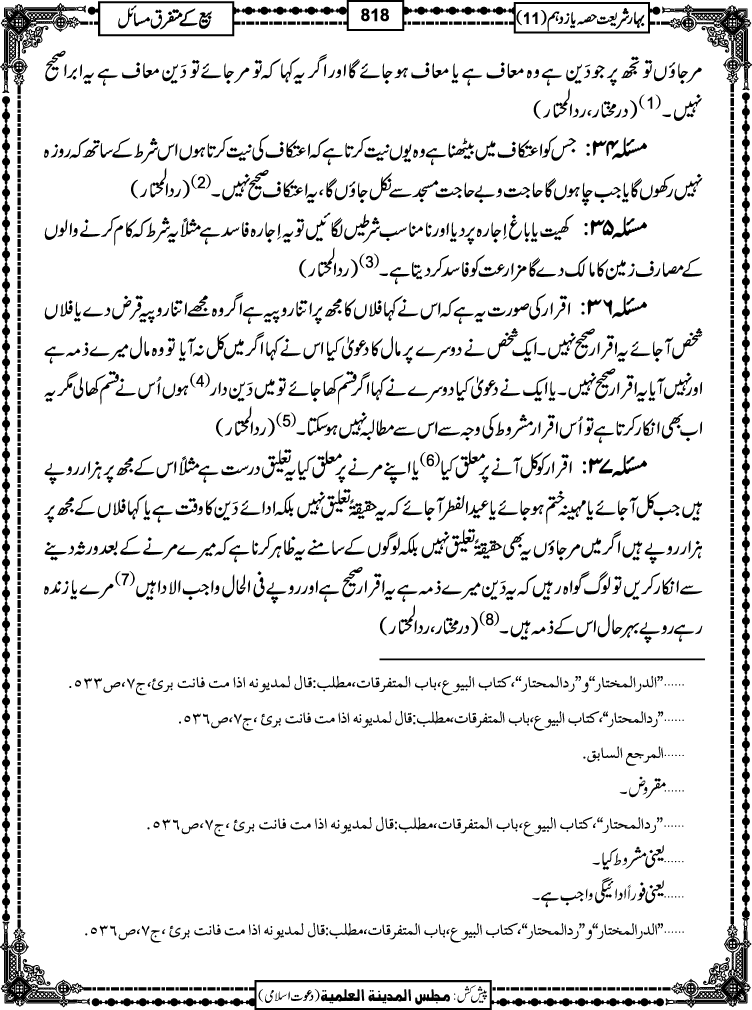 بہار شریعت حصہ یاز دہم (11)
818
بیع کے متفرق مسائل
مرجاؤں تو تجھ پر جو دَین ہے وہ معاف ہے یا معاف ہو جائے گا اور اگر یہ کہا کہ تو مر جائے تو دَین معاف ہے یہ ابرا صحیح
نہیں۔(1) (درمختار، ردالمحتار)
مسئلہ ۳۴: جس کو اعتکاف میں بیٹھنا ہے وہ یوں نیت کرتا ہے کہ اعتکاف کی نیت کرتا ہوں اس شرط کے ساتھ کہ روزہ
نہیں رکھوں گا یا جب چاہوں گا حاجت و بے حاجت مسجد سے نکل جاؤں گا، یہ اعتکاف صحیح نہیں۔(2) (ردالمحتار)
مسئلہ ۳۵: کھیت یا باغ اِجارہ پر دیا اور نامناسب شرطیں لگائیں تو یہ اِجارہ فاسد ہے مثلاً یہ شرط کہ کام کرنے والوں
کے مصارف زمین کا مالک دے گا مزارعت کو فاسد کر دیتا ہے۔(3) (ردالمحتار)
مسئلہ ۳۶: اقرار کی صورت یہ ہے کہ اس نے کہا فلاں کا مجھ پر اتنا روپیہ ہے اگر وہ مجھے اتنا روپیہ قرض دے یا فلاں
شخص آجائے یہ اقرار صحیح نہیں۔ ایک شخص نے دوسرے پر مال کا دعویٰ کیا اس نے کہا اگر میں کل نہ آیا تو وہ مال میرے ذمہ ہے
اور نہیں آیا یہ اقرار صحیح نہیں۔ یا ایک نے دعویٰ کیا دوسرے نے کہا اگر قسم کھا جائے تو میں دَین دار(4) ہوں اُس نے قسم کھالی مگر یہ
اب بھی انکار کرتا ہے تو اُس اقرار مشروط کی وجہ سے اس سے مطالبہ نہیں ہوسکتا۔(5) (ردالمحتار)
مسئلہ ۳۷: اقرار کو کل آنے پر معلق کیا(6) یا اپنے مرنے پر معلق کیا یہ تعلیق درست ہے مثلاً اس کے مجھ پر ہزار روپے
ہیں جب کل آجائے یا مہینہ ختم ہو جائے یا عید الفطر آجائے کہ یہ حقیقۃً تعلیق نہیں بلکہ ادائے دَین کا وقت ہے یا کہا فلاں کے مجھ پر
ہزار روپے ہیں اگر میں مرجاؤں یہ بھی حقیقۃً تعلیق نہیں بلکہ لوگوں کے سامنے یہ ظاہر کرنا ہے کہ میرے مرنے کے بعد ورثہ دینے
سے انکار کریں تو لوگ گواہ رہیں کہ یہ دَین میرے ذمہ ہے یہ اقرار صحیح ہے اور روپے فی الحال واجب الادا ہیں(7) مرے یا زندہ
رہے روپے بہر حال اس کے ذمہ ہیں۔(8) (درمختار، ردالمحتار)
......”الدرالمختار“و”ردالمحتار“،کتاب البیوع،باب المتفرقات،مطلب:قال لمدیونه اذا مت فانت برئ،ج٧،ص٥٣٣.
......”ردالمحتار“،کتاب البیوع،باب المتفرقات،مطلب:قال لمدیونه اذا مت فانت برئ،ج٧،ص٥٣٦.
......المرجع السابق.
......مقروض۔
......”ردالمحتار“،کتاب البیوع،باب المتفرقات،مطلب:قال لمدیونه اذا مت فانت برئ،ج٧،ص٥٣٦.
......یعنی مشروط کیا۔
......یعنی فوراً ادائیگی واجب ہے۔
......”الدرالمختار“و”ردالمحتار“،کتاب البیوع،باب المتفرقات،مطلب:قال لمدیونه اذا مت فانت برئ،ج٧،ص٥٣٦.
پیش کش: مجلس المدینة العلمیة (دعوت اسلامی)